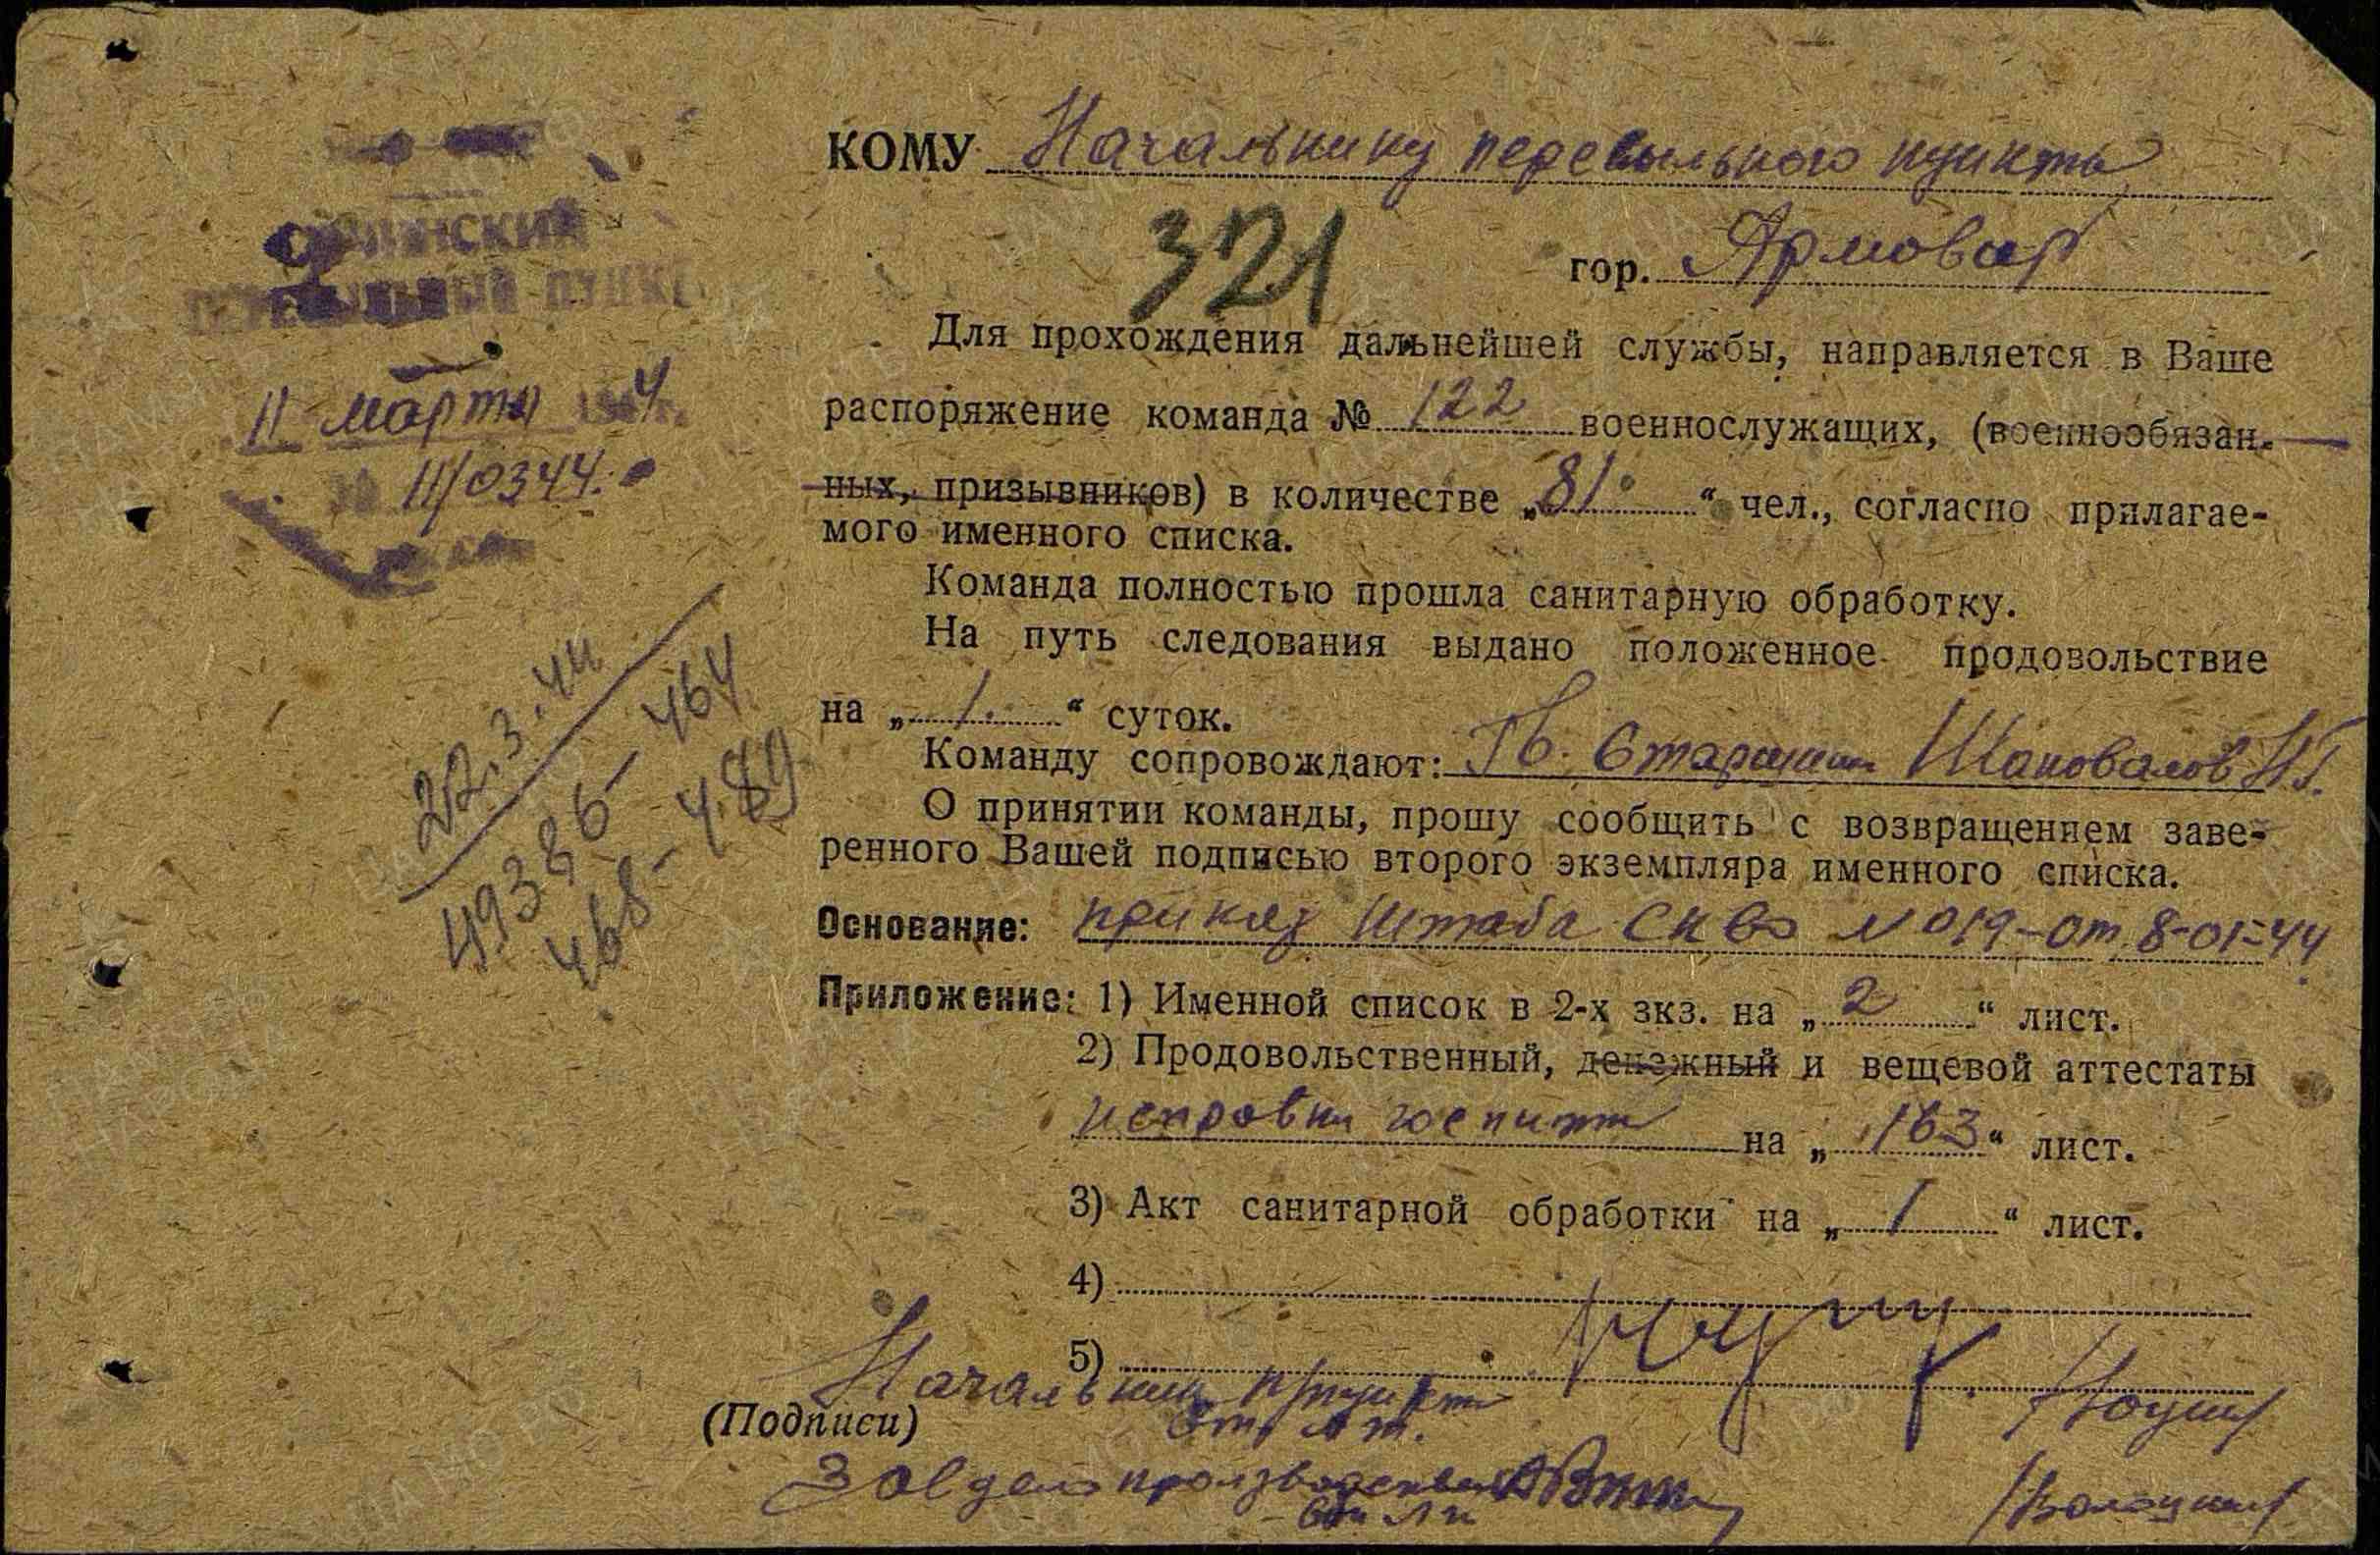 КОМУ Начальнику пересыльного пункта
321
гор. Армовар
ПЕРЕСЫЛЬНЫЙ ПУНКТ
11 марта 1944 г.
№ 11/0344.
Для прохождения дальнейшей службы, направляется в Ваше
распоряжение команда № 122 военнослужащих, (военнообязан-
ных, призывников) в количестве „81“ чел., согласно прилагае-
мого именного списка.
Команда полностью прошла санитарную обработку.
На путь следования выдано положенное продовольствие
на „1.“ суток.
Команду сопровождают: Гв. Старшина Шаповалов
О принятии команды, прошу сообщить с возвращением заве-
ренного Вашей подписью второго экземпляра именного списка.
22.3.44
49386-464
468-489
Основание: приказ Штаба СКВО N 019-от 8-01-44
Приложение: 1) Именной список в 2-х экз. на „2“ лист.
2) Продовольственный, денежный и вещевой аттестаты
на „163“ лист.
3) Акт санитарной обработки на „1“ лист.
4)
5)
Начальник п/пункта
(Подписи) Ст. л-т.
Зав делопроизводством